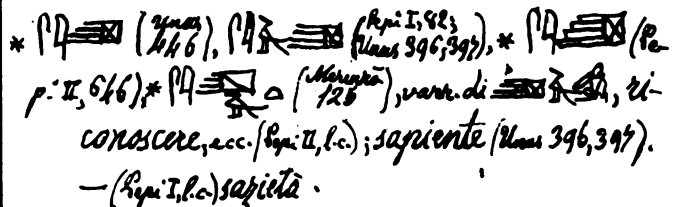 * (Unas 446), (Pepi I, 82; Unas 396,397), * (Pe-
pi II, 646), * (Merenrâ 126), varr. di , ri-
conoscere, ecc. (Pepi II, l.c.); sapiente (Unas 396,397).
— (Pepi I, l.c.) sazietà.